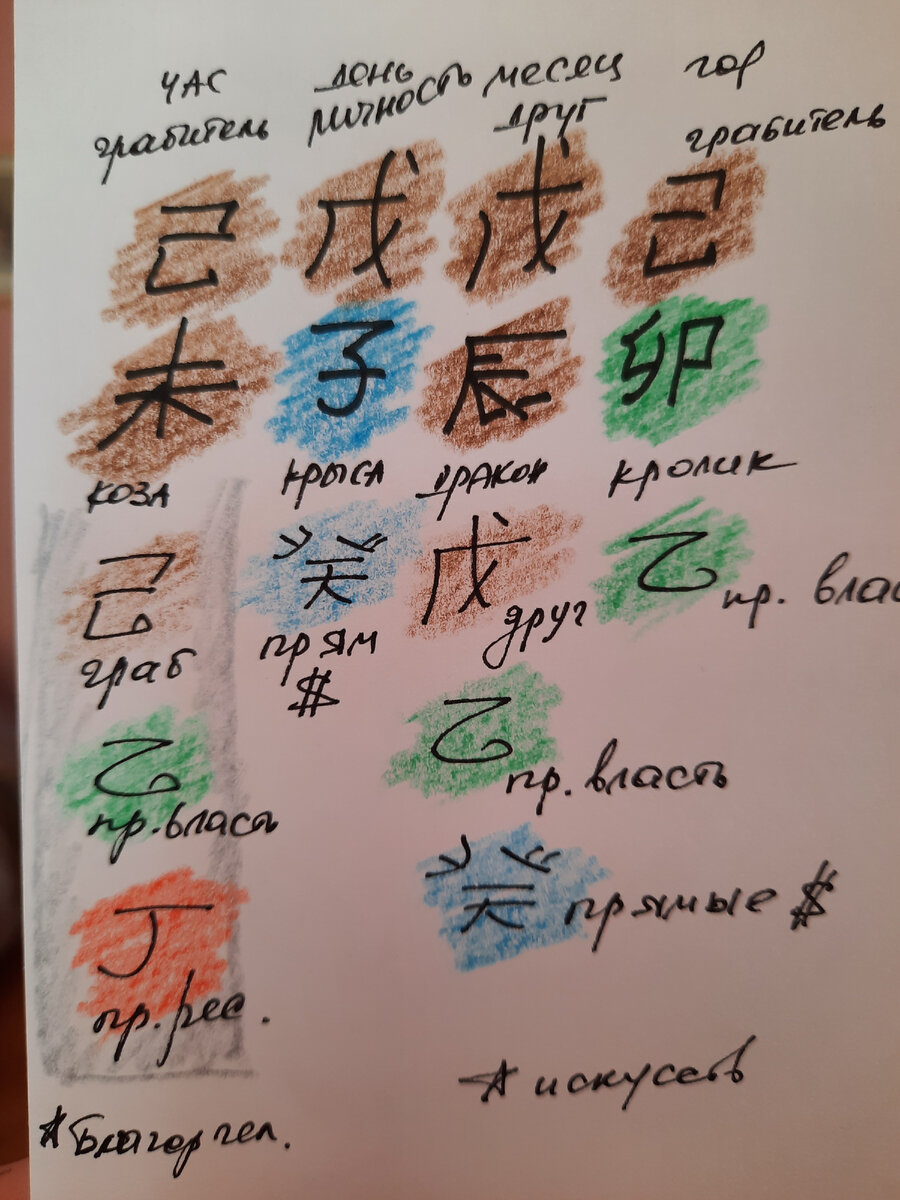 час день месяц год
грабитель личность друг грабитель
己 戊 戊 己
未 子 辰 卯
коза крыса дракон кролик
己 癸 戊 乙
граб прям $ друг пр. влас
乙 乙
пр. власть пр. власть
丁 癸 прямые $
пр. рес.
☆ искусств
☆ Благор чел.